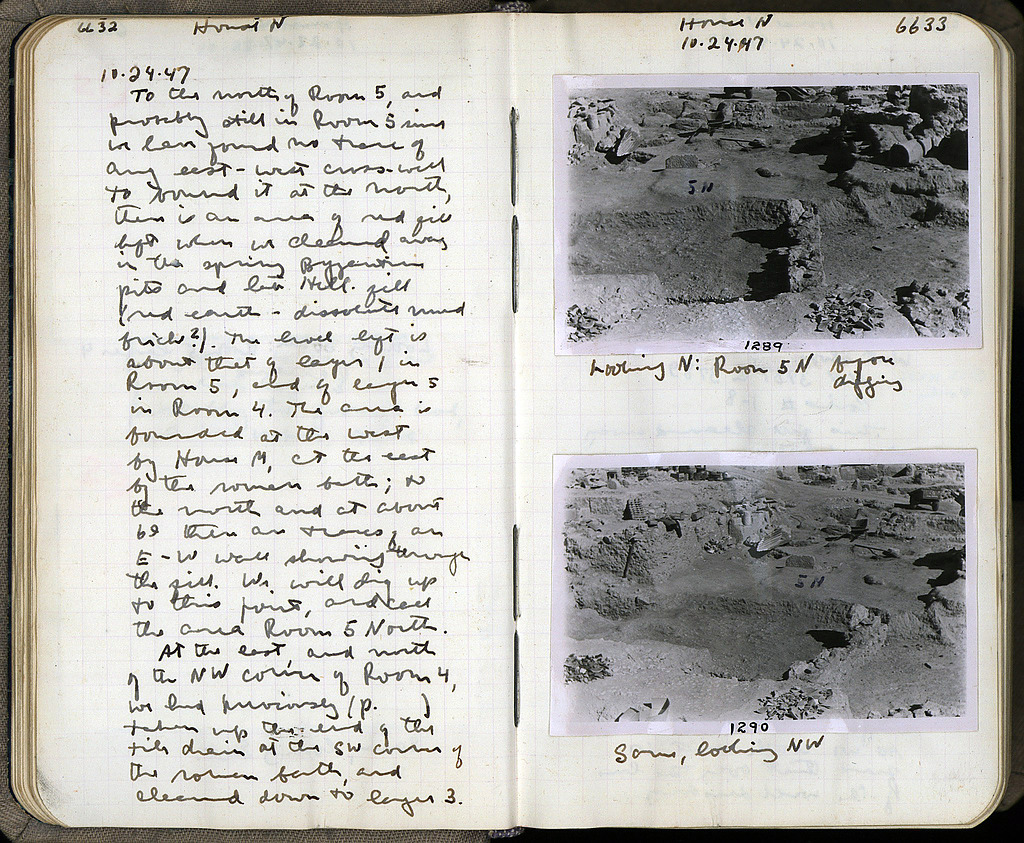 6632
House N
10.24.47
To the north of Room 5, and
probably still in Room 5 since
we have found no trace of
any east-west cross-wall
to bound it at the north,
there is an area of red fill
left when we cleaned away
in the spring Byzantine
pits and late Hell. fill
(red earth - dissolved mud
brick?). The level left is
about that of layer 1 in
Room 5, and of layer 5
in Room 4. The area is
bounded at the west
by House M, at the east
by the roman bath; to
the north and at about
there are traces of an
E-W wall showing through
the fill. We will dig up
to this point, and call
the area Room 5 North.
At the east, and north
of the NW corner of Room 4,
we had previously (p. )
taken up the end of the
tile drain at the SW corner of
the roman bath, and
cleaned down to layer 3.
House N
6633
10.24.47
5N
1289
Looking N: Room 5 N before
digging
5N
1290
Same, looking NW